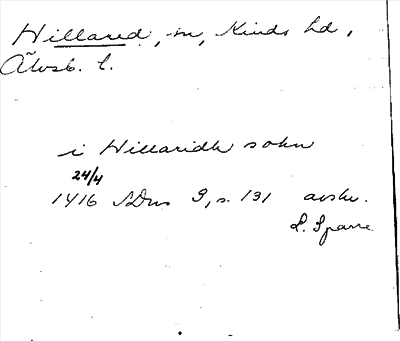 Hillared, sn, Kinds hd,
Älvsb. l.
i Hillaridh sokn
24/4
1416 SDns 3, s. 131 avskr.
L. Sparre.